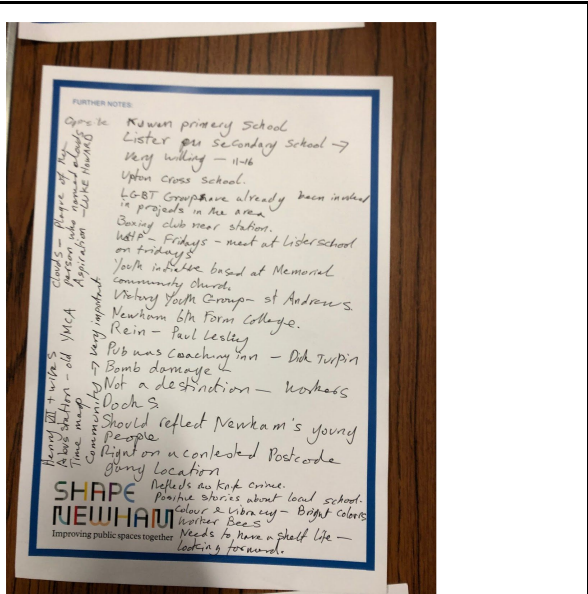 FURTHER NOTES:
Opposite Kuwan primary School
Lister secondary school →
Very willing — 11-16
Upton Cross school.
LGBT Group have already been involved
in projects in the area
Boxing club near station.
Fridays – meet at Lister school
on fridays
Youth initiative based at Memorial
community church.
Victory Youth Group – St Andrews.
Newham 6th Form College.
Rein – Paul Lesley
Pub was Coaching inn – Dick Turpin
Bomb damage –
Not a destination — workers
Docks
Should reflect Newham's young
People
Right on a contested Postcode
gang location
Reflects no knife crime.
Positive stories about local school.
Colour & vibrancy – Bright colours
Worker Bees
Needs to have a shelf life —
looking forward.
Clouds – Plaque of the
person who named clouds
Aspiration – LUKE HOWARD
Henry VIII + wives
bus station – old YMCA
Time map
Community → very important
SHAPE
NEWHAM
Improving public spaces together